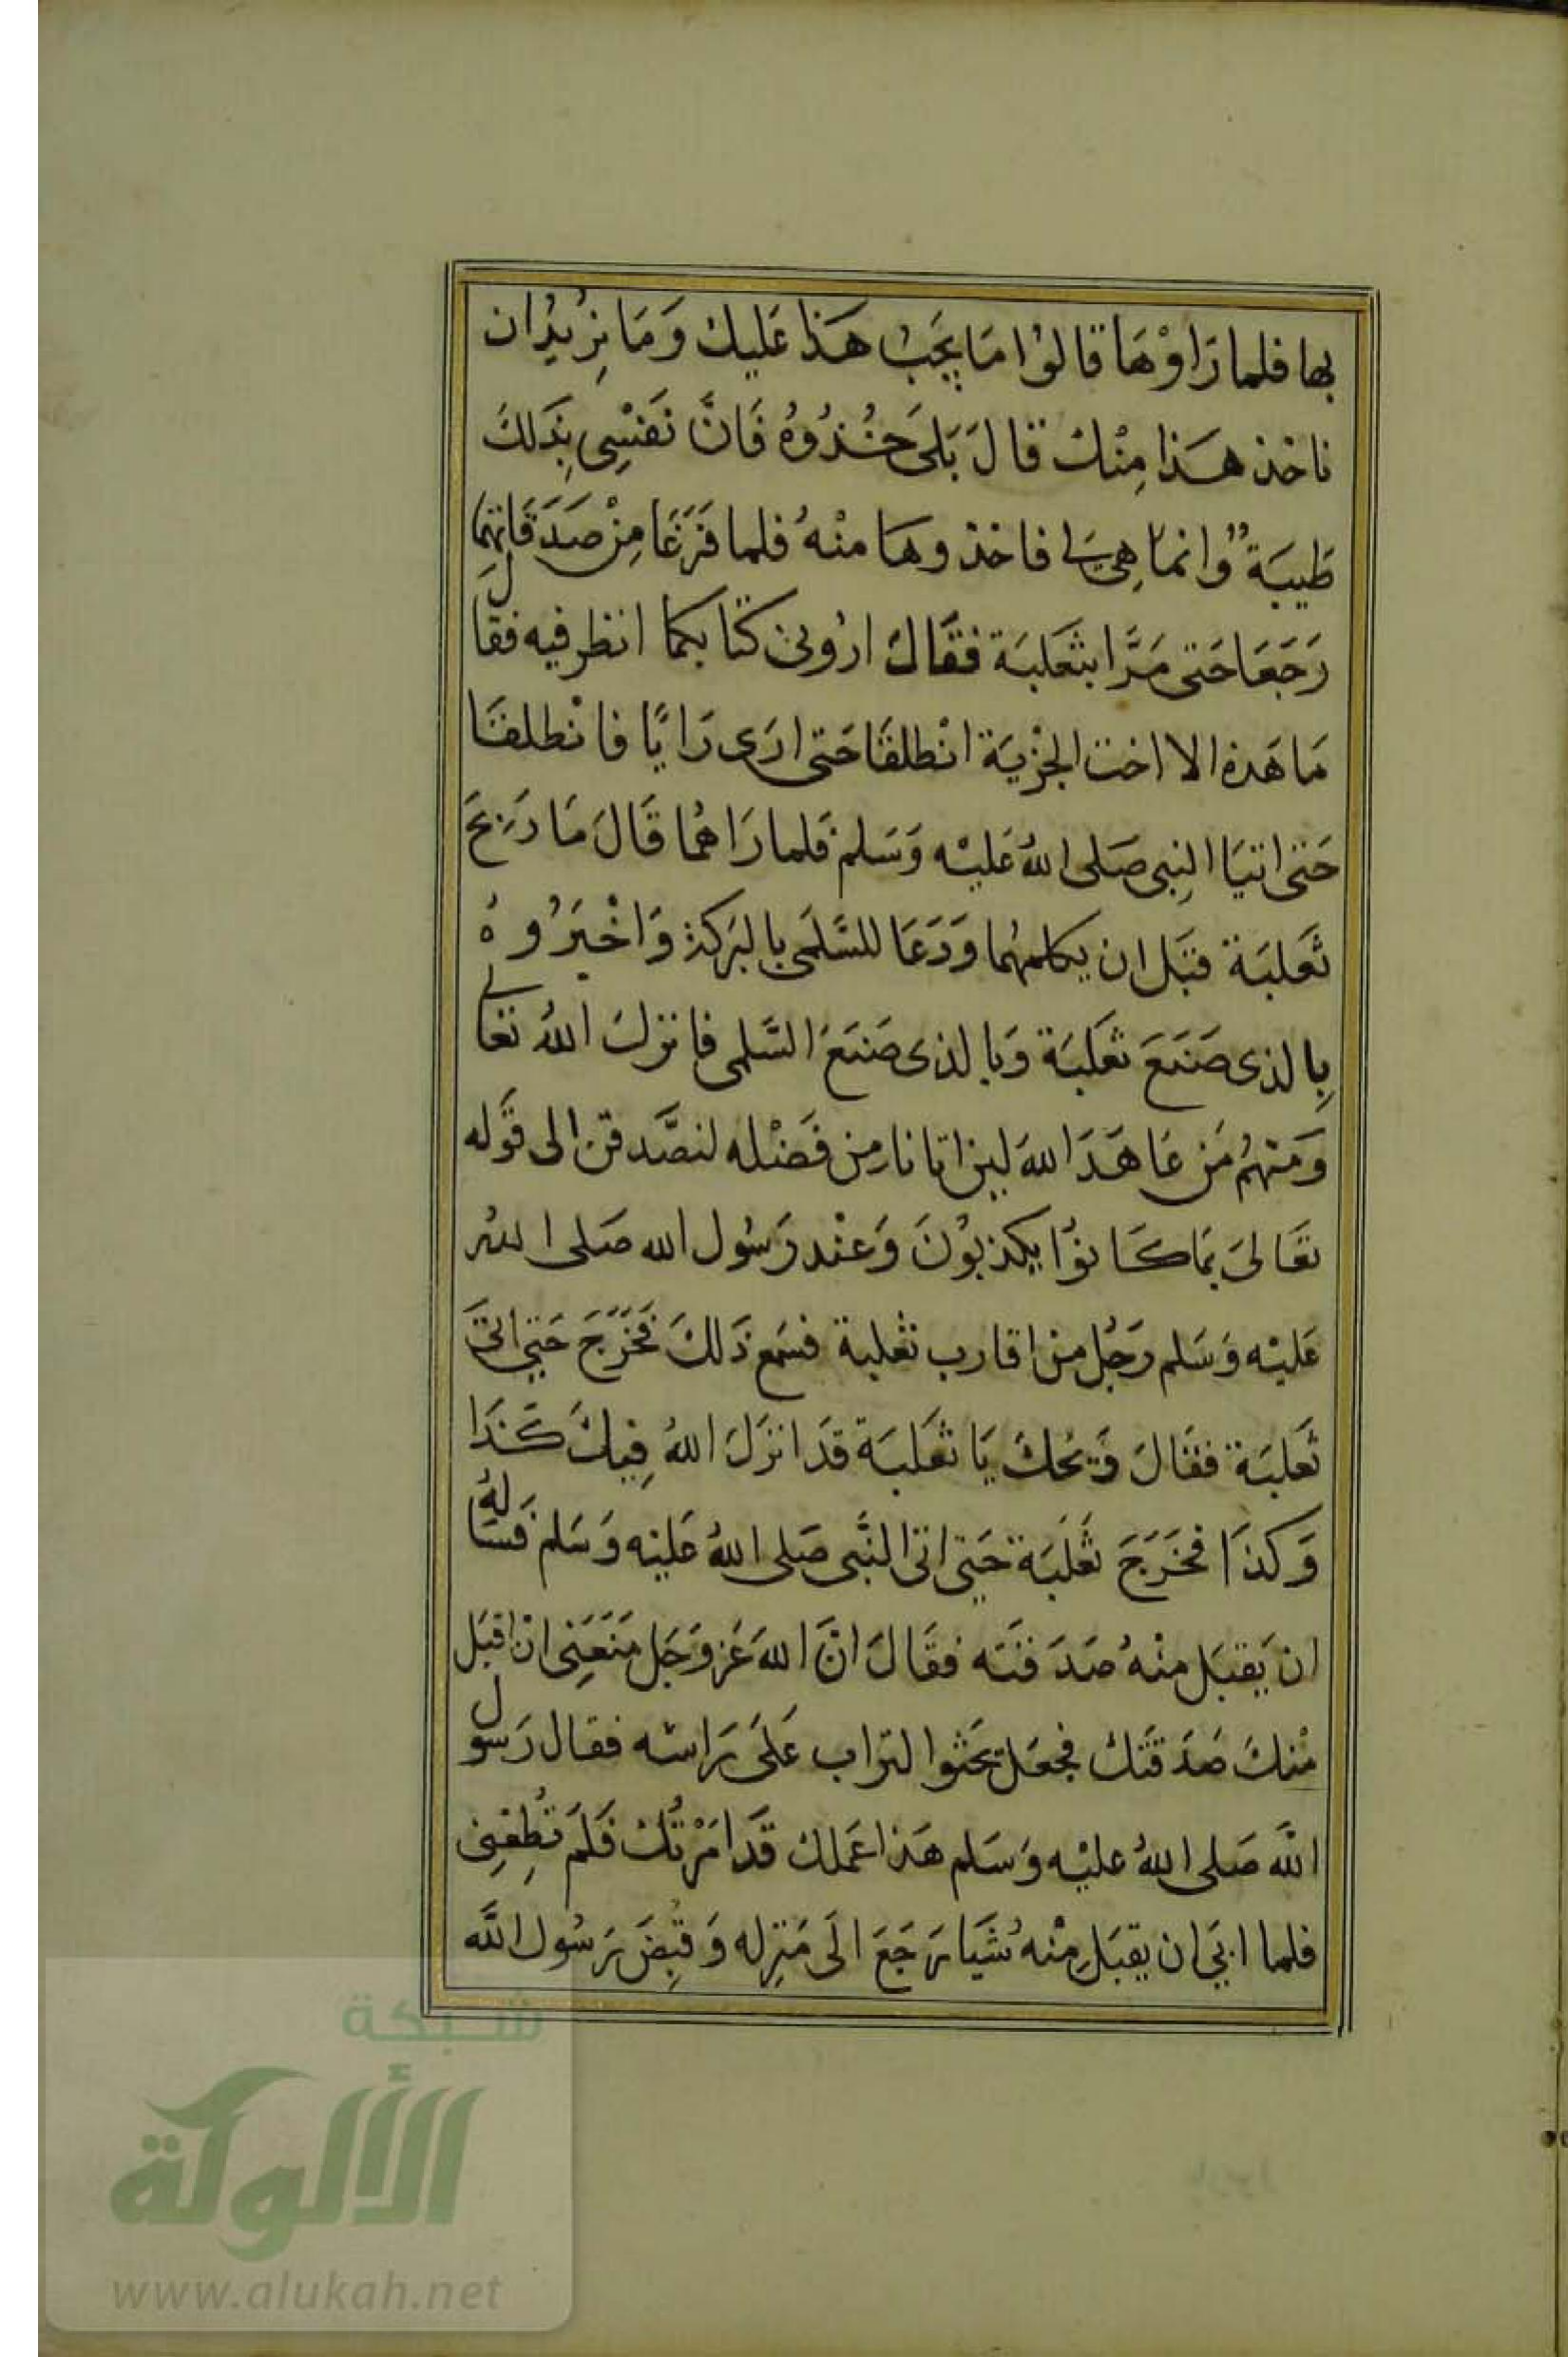 بها فلما رَاوْهَا قالوُا مَا يجَبُ هَذا عَليكْ وَمَا نِرُيدُ ان
ناخذ هَذا مِنْك قالَ بَلَى خُذُوهُ فَانَّ نَفسْىِ بِذَلكَ
طَيبَةٌ وُانماَ هِىَ لى فاخذوهَا منْهُ فلما فَرَغَا مِنْ صَدَقَاتهِمَا
رَجَعَا حَتى مَرَّا بثَعَلبَة فقَالَ ارُونى كتَابكما انظر فيه فقَالَ
مَا هَذه الا اخت الجزْيَة انْطلقَا حَتى ارَى رَايًا فانْطلقَا
حَتى اتيَا النِبى صَلى اللهُ عَليْه وَسَلم فَلما رَاهمُا قَالَ مَا رَيحَ
ثَعَلبَة قبَل ان يكلمهُما وَدَعَا للسَّلَمى بالبَركة وَاخْبَرُوهُ
بِالذى صَنَعَ ثعَلبَة وَبالذى صَنَعَ السَّلمى فانزلَ اللهُ تعَالى
وَمَنهُم مَن عَاهَدَ اللهَ لين اتانا مِن فَضْله لنصَّدقن الى قَوله
تعَالىَ بمَا كَانوُا يكذبوُنَ وَعنْد رَسُول الله صَلى اللهُ
عَليْه وَسَلم رَجُل من اقارب ثعْلبة فسَمع ذَلكَ فَخَرَجَ حَتى اتىَ
ثَعَلبَة فقَالَ وَيْحَكَ يَا ثعَلبَة قَد انزَلَ اللهُ فِيكَ كَذَا
وَكذَا فخَرَجَ ثعَلَبَة حَتى اتى النَّبى صَلى اللهُ عَليْه وَسَلم فَسَالهُ
ان يَقبَل منْهُ صَدَقتَه فقَالَ انَّ اللهَ عَز وَجَل مَنَعَنِى انْ اقبَل
منْكَ صَدَقَتكَ فجعَل يَحَثوا التراب عَلىَ رَاسَه فقال رَسوُل
اللَّه صَلى اللهُ عليْه وَسَلم هَذا عَملك قَد امَرْتُكْ فَلَم تُطِعْنِى
فلما ابىَ ان يقبَل مِنْهُ شَيَا رَجَعَ الَى مَنزِله وَقُبِضَ رَسُول اللَّه
شبكة
الألوكة
www.alukah.net